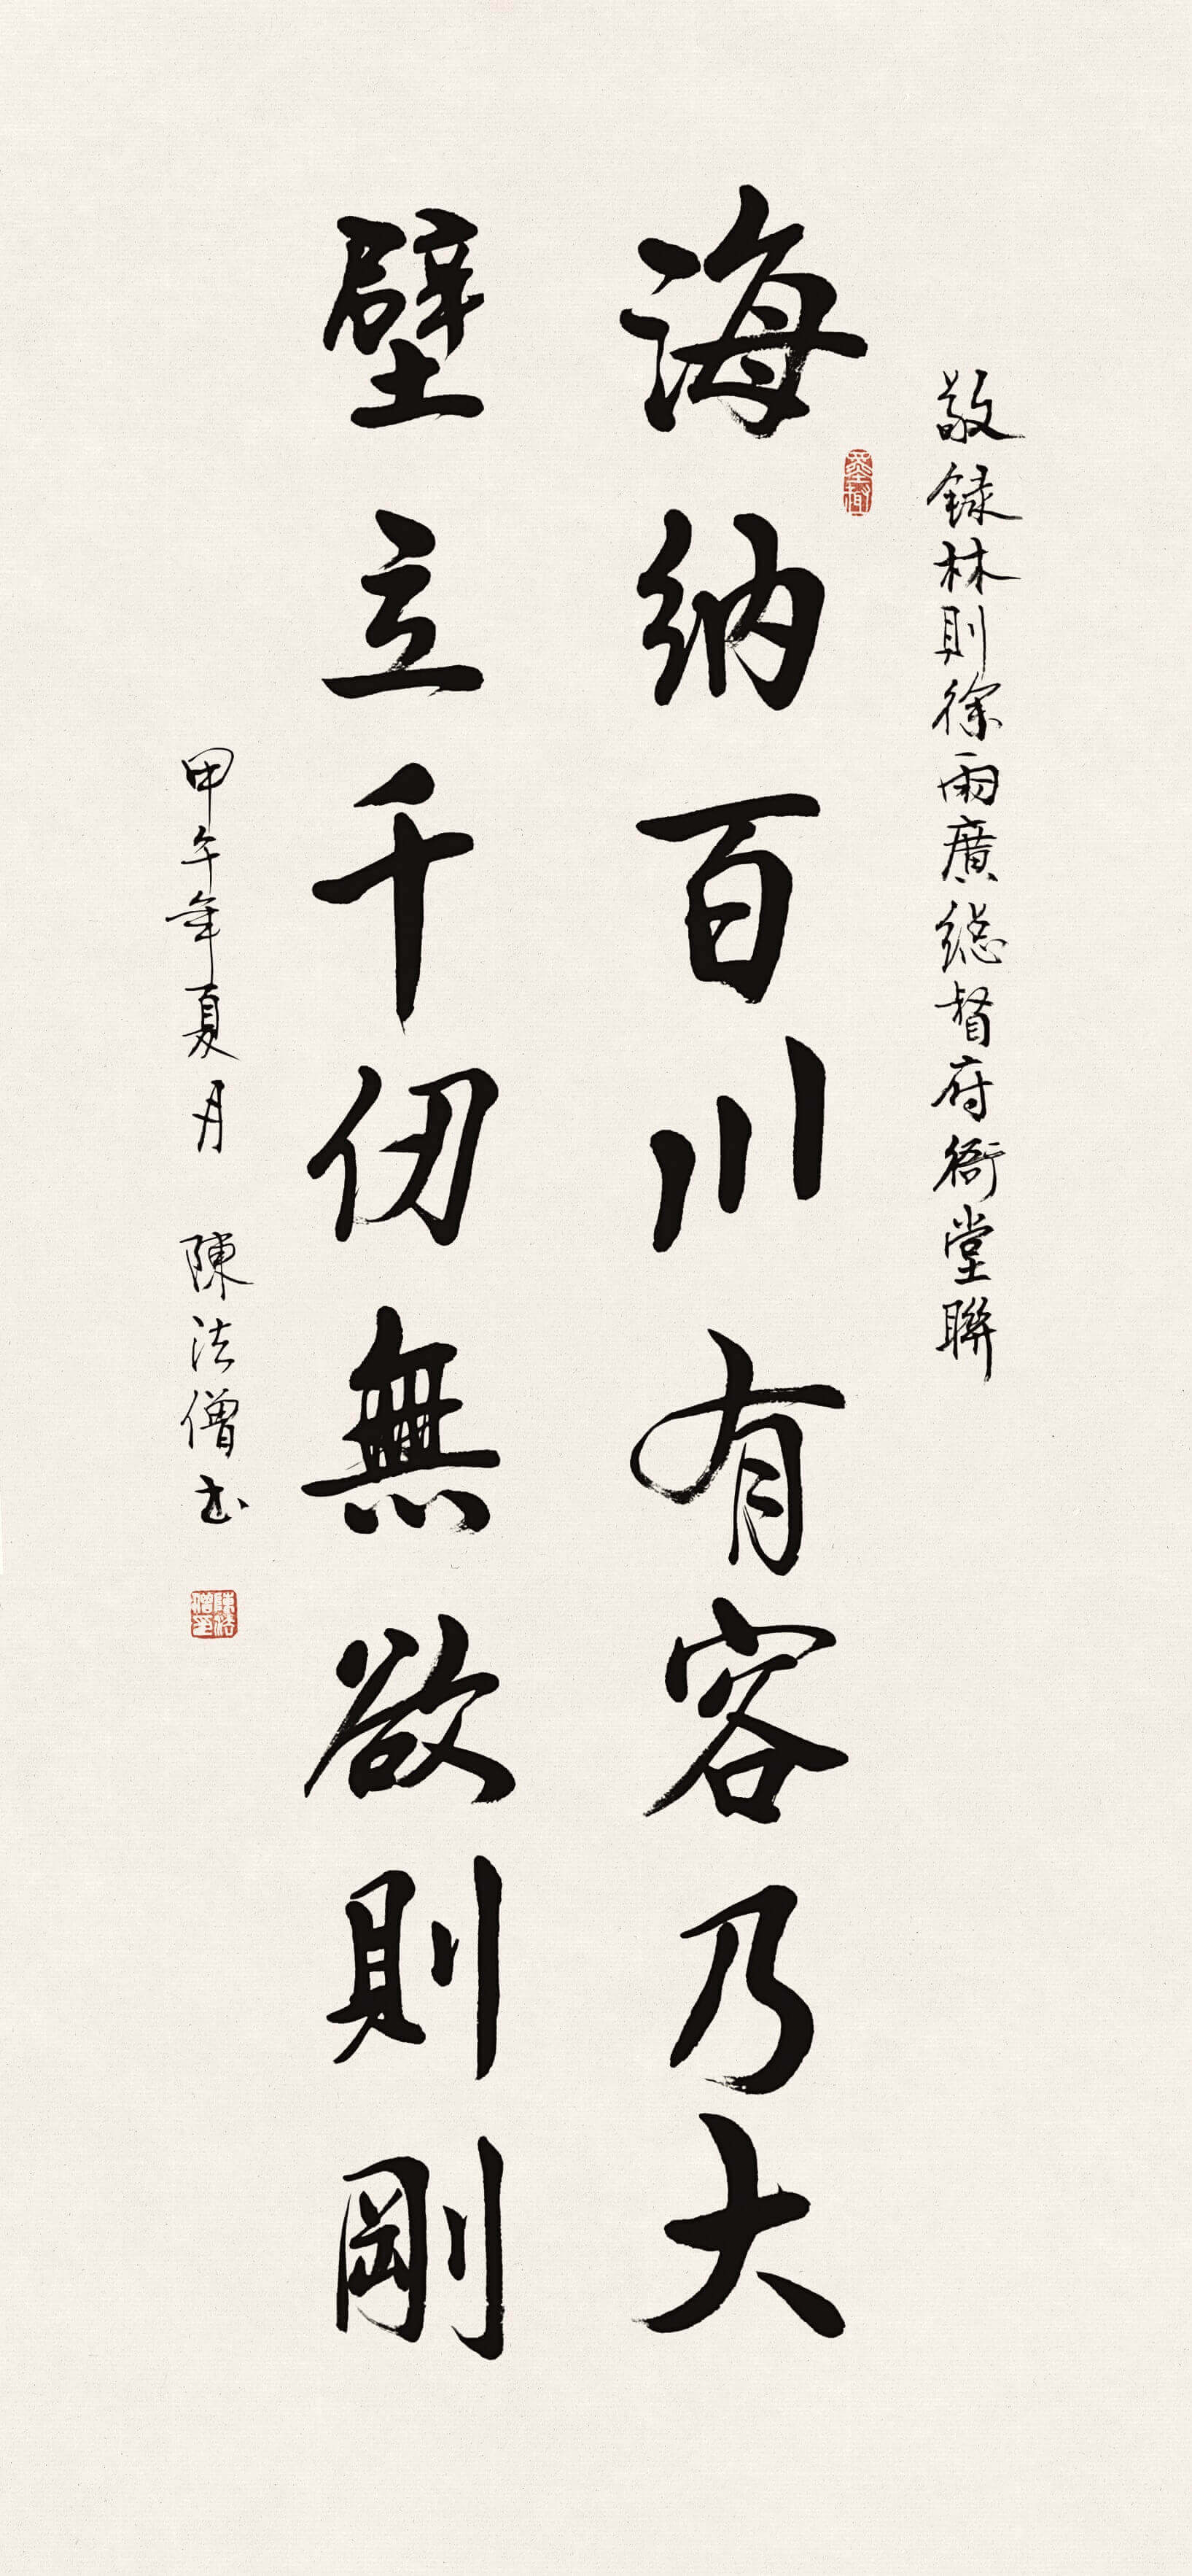 敬録林則徐兩廣總督府衙堂聯
海納百川有容乃大
壁立千仞無欲則剛
甲午年夏月 陳法僧书
陳法僧印